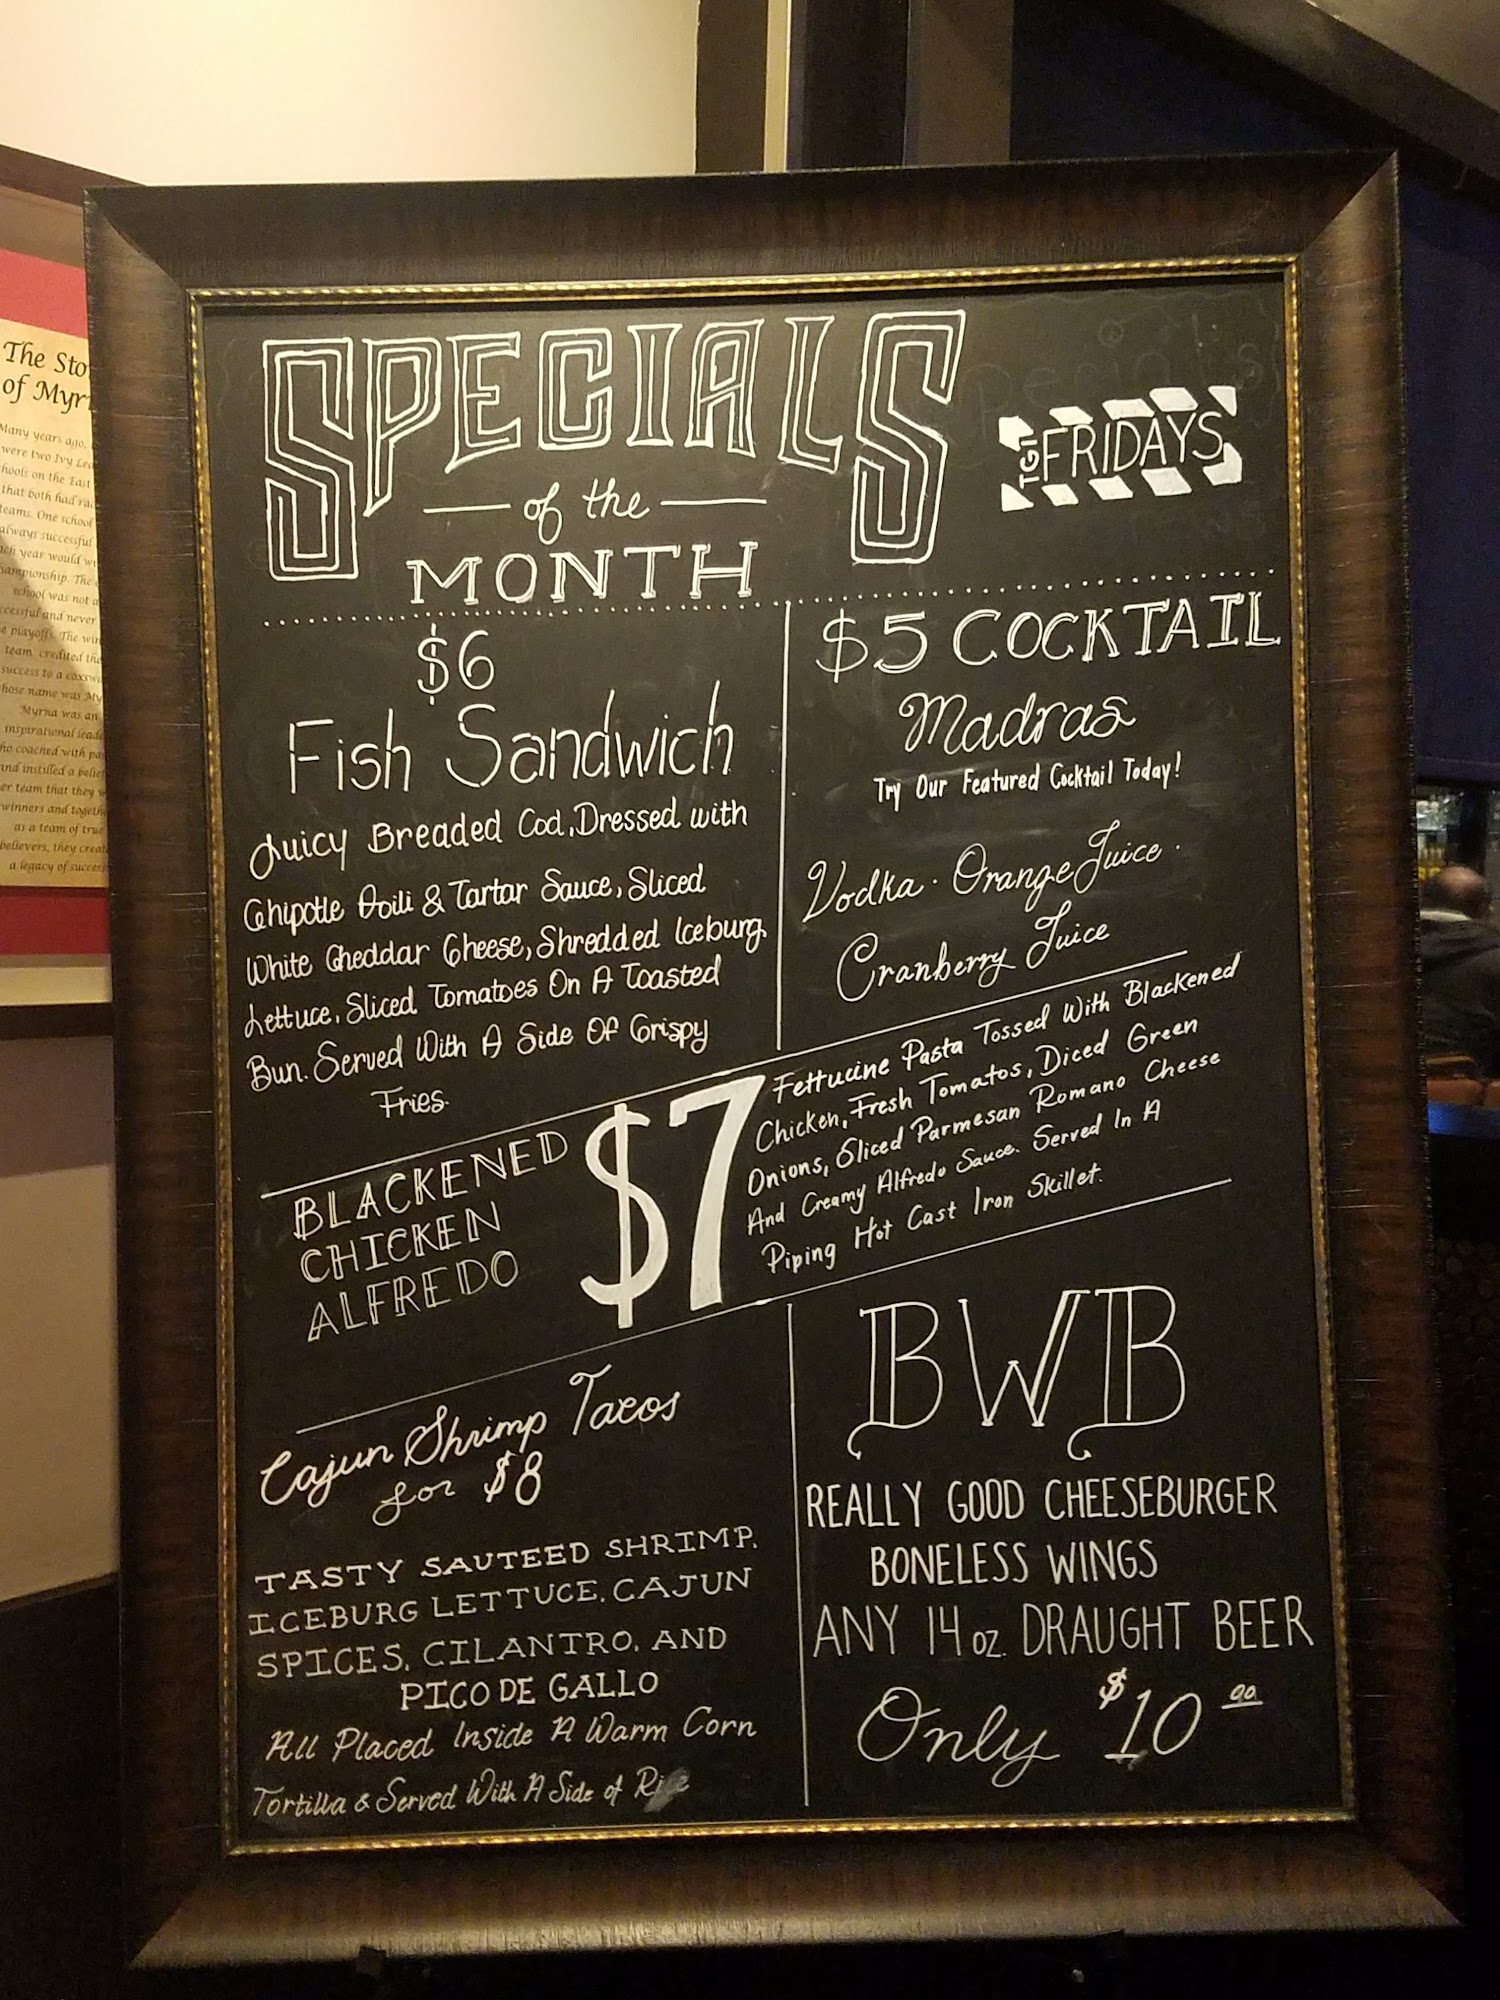 The Sto
of Myr
Many years ago,
were two Ivy Lea
hools on the East
that both had ra
teams. One school
always successful
ach year would wi
hampionship. The
school was not a
ccessful and never
e playoffs. The win
team credited the
success to a coxsw
hose name was My
Myrna was an
inspirational leade
ho coached with pa
and instilled a belief
er team that they w
winners and togethe
as a team of true
believers, they creat
a legacy of success
SPECIALS
of the
MONTH
TGI FRIDAYS
$6
Fish Sandwich
Juicy Breaded Cod, Dressed with
Chipotle Aoili & Tartar Sauce, Sliced
White Cheddar Cheese, Shredded Iceburg
Lettuce, Sliced Tomatoes On A Toasted
Bun. Served With A Side Of Crispy
Fries.
$5 COCKTAIL
Madras
Try Our Featured Cocktail Today!
Vodka · Orange Juice ·
Cranberry Juice
BLACKENED
CHICKEN
ALFREDO
$7
Fettucine Pasta Tossed With Blackened
Chicken, Fresh Tomatos, Diced Green
Onions, Sliced Parmesan Romano Cheese
And Creamy Alfredo Sauce. Served In A
Piping Hot Cast Iron Skillet.
Cajun Shrimp Tacos
for $8
TASTY SAUTEED SHRIMP,
ICEBURG LETTUCE, CAJUN
SPICES, CILANTRO, AND
PICO DE GALLO
All Placed Inside A Warm Corn
Tortilla & Served With A Side of Rice
BWB
REALLY GOOD CHEESEBURGER
BONELESS WINGS
ANY 14 oz. DRAUGHT BEER
Only $10 00